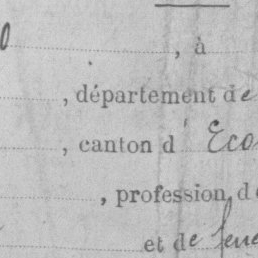 0 , à
, département de
, canton d'
, profession de
et de feue